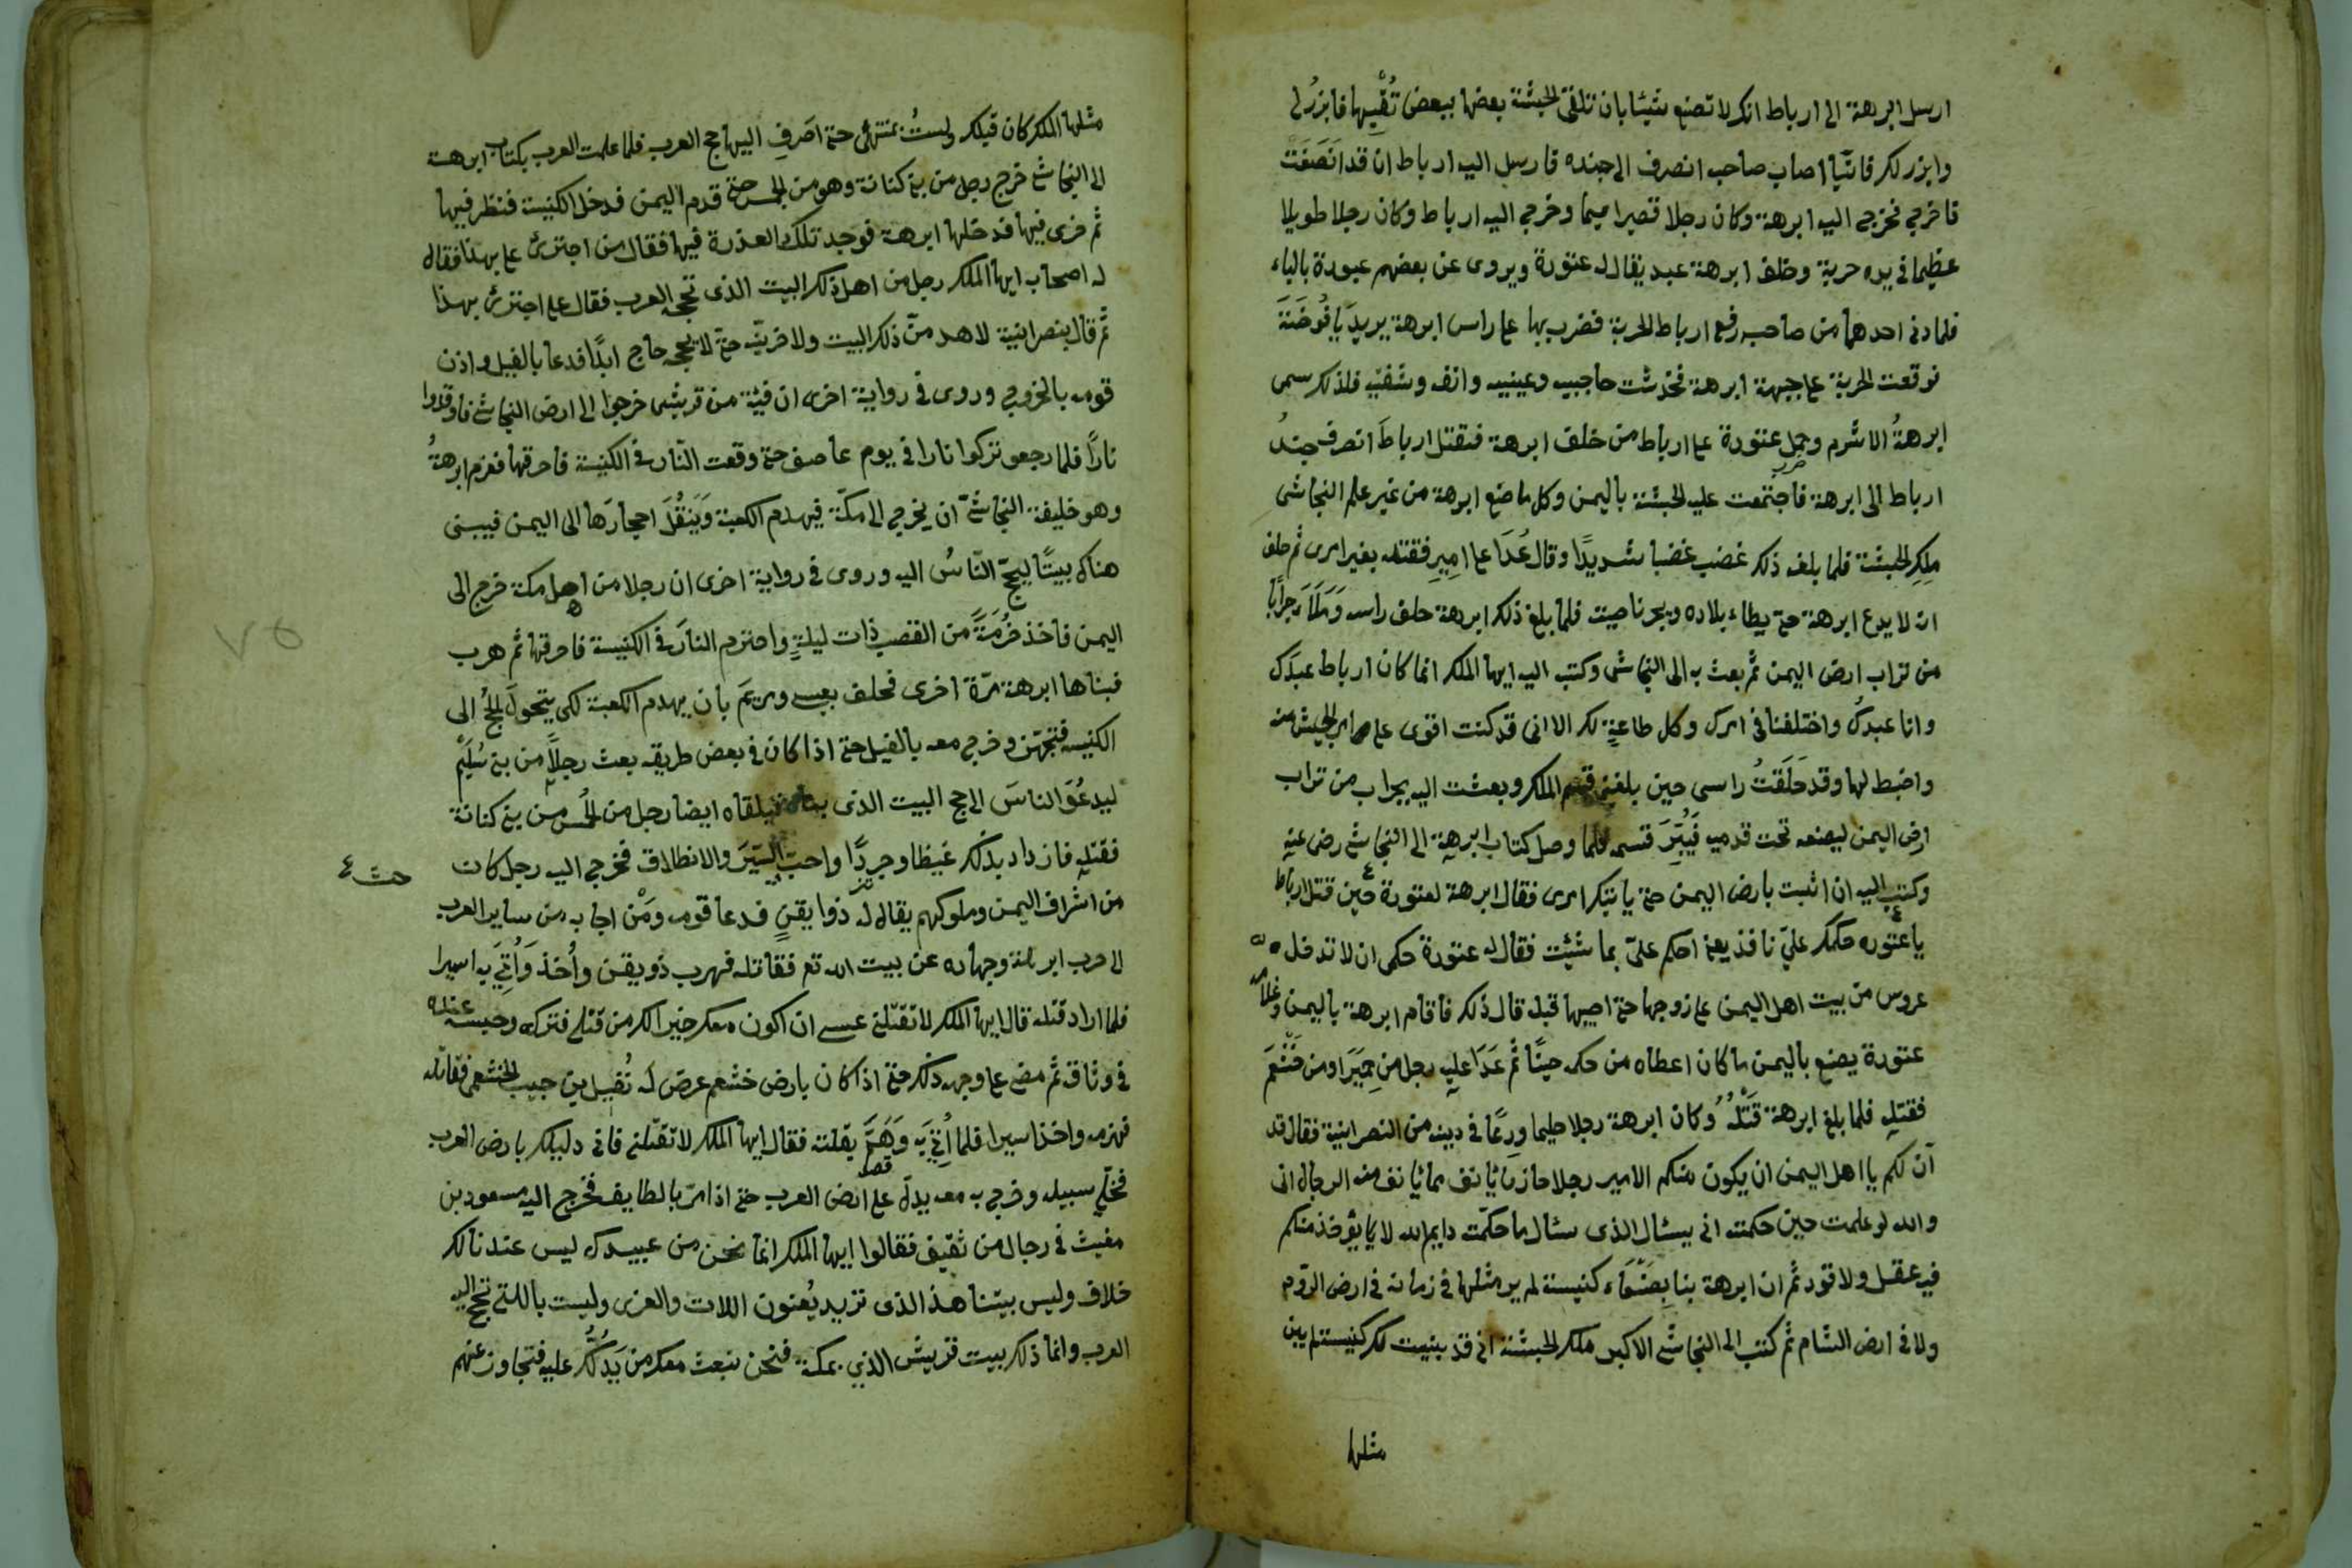 ارسل ابرهة الى ارباط انك لا تصنع شيئا بان تلقى الحبشة بعضها ببعض تفنيها فابرز لى
وابرز لك فاينا اصاب صاحبه انصرف اليه جنده فارسل اليه ارباط ان قد انصفت
فاخرج فخرج اليه ابرهة وكان رجلا قصيرا وخرج اليه ارباط وكان رجلا طويلا
عظيما فى يده حربة وخلف ابرهة عبد يقال له عتورة ويروى عن بعضهم عيودة بالياء
فلما دنى احدهما من صاحبه رفع ارباط الحربة فضرب بها على راس ابرهة يريد يافوخه
فوقعت الحربة على جبهة ابرهة فخدشت حاجبيه وعينيه وانفه وشفتيه فلذلك سمى
ابرهة الاشرم وحمل عتورة على ارباط من خلف ابرهة فقتل ارباط انصرف جند
ارباط الى ابرهة فاجتمعت عليه الحبشة باليمن وكل ما صنع ابرهة من غير علم النجاشى
ملك الحبشة فلما بلغه ذلك غضب غضبا شديدا وقال عدا على اميرى فقتله بغير امرى ثم حلف
ان لا يدع ابرهة حتى يطاء بلاده ويجز ناصيته فلما بلغ ذلك ابرهة حلق راسه وملأ جرابا
من تراب ارض اليمن ثم بعث به الى النجاشى وكتب اليه ايها الملك انما كان ارباط عبدك
وانا عبدك واختلفنا فى امرك وكل طاعة لك الا انى قد كنت اقوى على امر الجيش منه
واضبط لها وقد حلقت راسى حين بلغنى قسم الملك وبعثت اليه بجراب من تراب
ارض اليمن ليضعه تحت قدميه فيبر قسمه فلما وصل كتاب ابرهة الى النجاشى رضى عنه
وكتب اليه ان اثبت بارض اليمن حتى ياتيك امرى فقال ابرهة لعتورة حين قتل ارباط
يا عتوره حكمك على نافذ يعنى احكم على بما شئت فقال له عتورة حكمى ان لا تدخل
عروس من بيت اهل اليمن على زوجها حتى اصيبها قبله قال ذلك فاقام ابرهة باليمن وغلامه
عتورة يصنع باليمن ما كان اعطاه من حكمه حينا ثم عدا عليه رجل من حمير او من خثعم
فقتله فلما بلغ ابرهة قتله وكان ابرهة رجلا حليما ورعا فى دينه من النصرانية فقال قد
آن لكم يا اهل اليمن ان يكون منكم الامير رجلا حازما يانف مما يانف منه الرجال انى
والله لو علمت حين حكمته انه يسئال الذى سئال ما حكمته وايم الله لا يؤخذ منكم
فيه عقل ولا قود ثم ان ابرهة بنا بصنعاء كنيسة لم ير مثلها فى زمانه فى ارض الروم
ولا فى ارض الشام ثم كتب الى النجاشى الاكبر ملك الحبشة انى قد بنيت لك كنيسة لم يبن
مثلها
مثلها الملك كان قبلك ولست بمنتهى حتى اصرف اليها حج العرب فلما علمت العرب بكتاب ابرهة
الى النجاشى خرج رجل من بنى كنانة وهو من الحمس حتى قدم اليمن فدخل الكنيسة فنظر فيها
ثم خرى فيها فدخلها ابرهة فوجد تلك العذرة فيها فقال من اجترئ على بهذا فقال
له اصحابه ايها الملك رجل من اهل ذلك البيت الذى تحجه العرب فقال على اجترئ بهذا
ثم قال بنصرانية لاهدمن ذلك البيت ولاخربنه حتى لا يحجه حاج ابدا فدعا بالفيل واذن
قومه بالخروج وروى فى رواية اخرى ان فئة من قريش خرجوا الى ارض النجاشى فاوقدوا
نارا فلما رجعو تركوا نارا فى يوم عاصف حتى وقعت النار فى الكنيسة فاحرقها فعزم ابرهة
وهو خليفة النجاشى ان يخرج الى مكة فيهدم الكعبة وينقل احجارها الى اليمن فيبنى
هناك بيتا ليحج الناس اليه وروى فى رواية اخرى ان رجلا من اهل مكة خرج الى
اليمن فاخذ حزمة من القصب ذات ليلة واضرم النار فى الكنيسة فاحرقها ثم هرب
فبناها ابرهة مرة اخرى فحلف بعيسى ومريم بان يهدم الكعبة لكى يتحول الحج الى
الكنيسه فتجهز وخرج معه بالفيل حتى اذا كان فى بعض طريقه بعث رجلا من بنى سليم
ليدعو الناس الى حج البيت الذى بناه فيلقاه ايضا رجل من الحمس من بنى كنانة
فقتله فازداد بذلك غيظا وجردا واحب السير والانطلاق فخرج اليه رجل كان
من اشراف اليمن وملوكهم يقال له ذوا يقن فدعا قومه ومن اجابه من ساير العرب
الى حرب ابرهة وجهاده عن بيت الله تع فقاتله فهرب ذو يقن وأخذ وأتى به اسيرا
فلما اراد قتله قال ايها الملك لا تقتلنى عسى ان اكون معك خير لك من قتلى فتركه وحبسه عنده
فى وثاق ثم مضى على وجهه ذلك حتى اذا كان بارض خثعم عرض له نفيل بن حبيب الخثعمى فقاتله
فهزمه واخذ اسيرا فلما أتى به وهم بقتله فقال ايها الملك لا تقتلنى فانى دليلك بارض العرب
فخلى سبيله وخرج به معه يدله على ارض العرب حتى اذا مر بالطايف فخرج اليه مسعود بن
مغيث فى رجال من ثقيف فقالوا ايها الملك انما نحن من عبيدك ليس عندنا لك
خلاف وليس بيتنا هذا الذى تريد يعنون اللات والعزى وليست باللتى تحج اليه
العرب وانما ذلك بيت قريش الذي بمكة فنحن نبعث معك من يدلك عليه فتجاوز عنهم